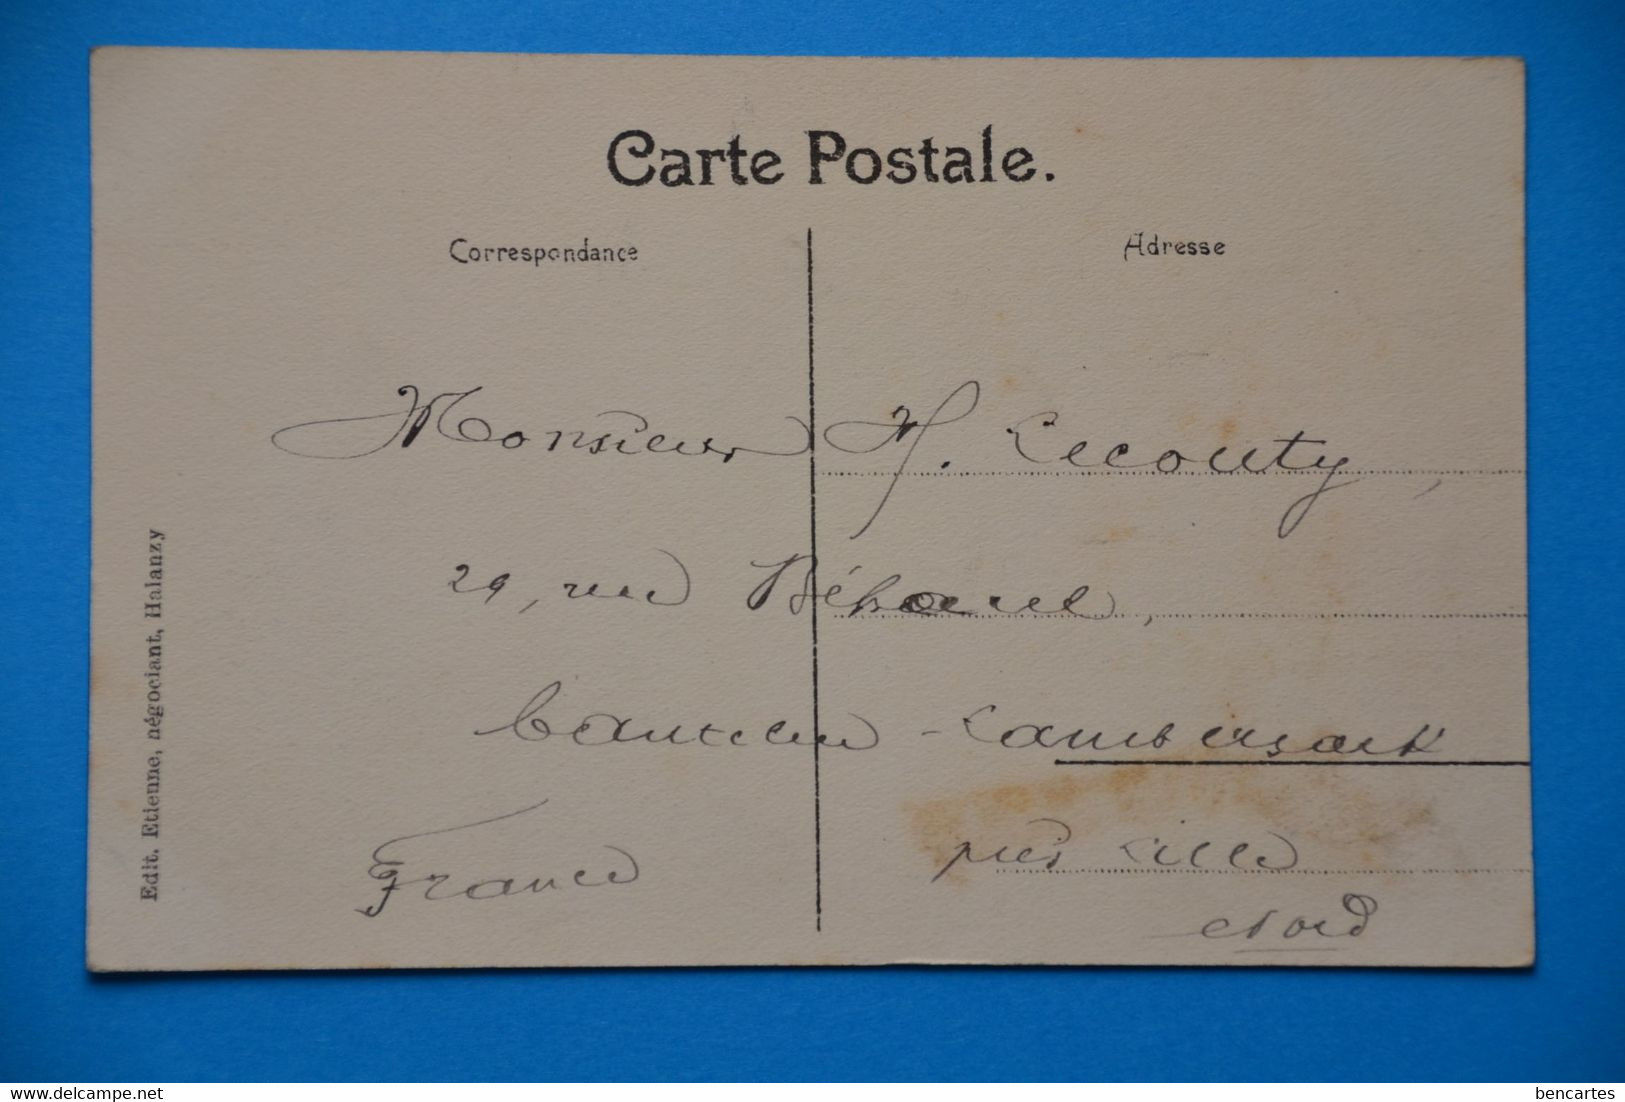 Carte Postale.
Correspondance
Adresse
Monsieur H. Lecouty,
29, rue
Canteleu - Lambersart
près Lille
Nord
France
Edit. Etienne, négociant, Halanzy
bencartes